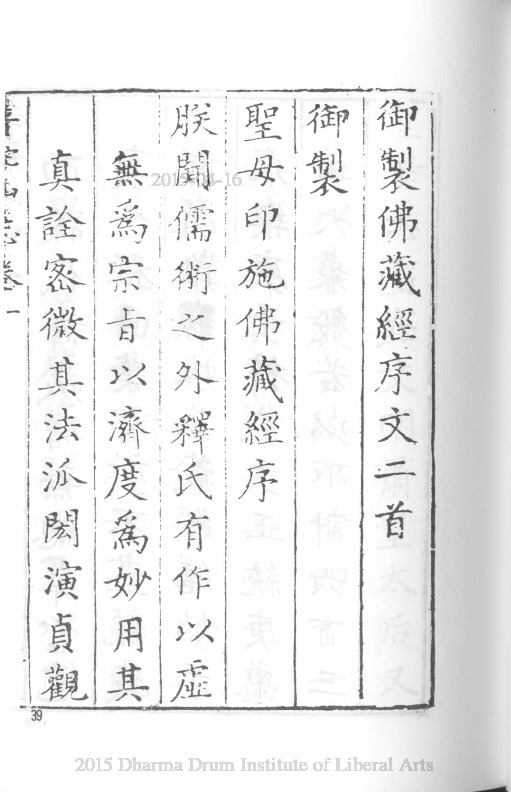 御製佛藏經序文二首
御製
聖母印施佛藏經序
朕聞儒術之外釋氏有作以虛
無爲宗旨以濟度爲妙用其
真詮密微其法派閎演貞觀
39
2015-04-16
2015 Dharma Drum Institute of Liberal Arts